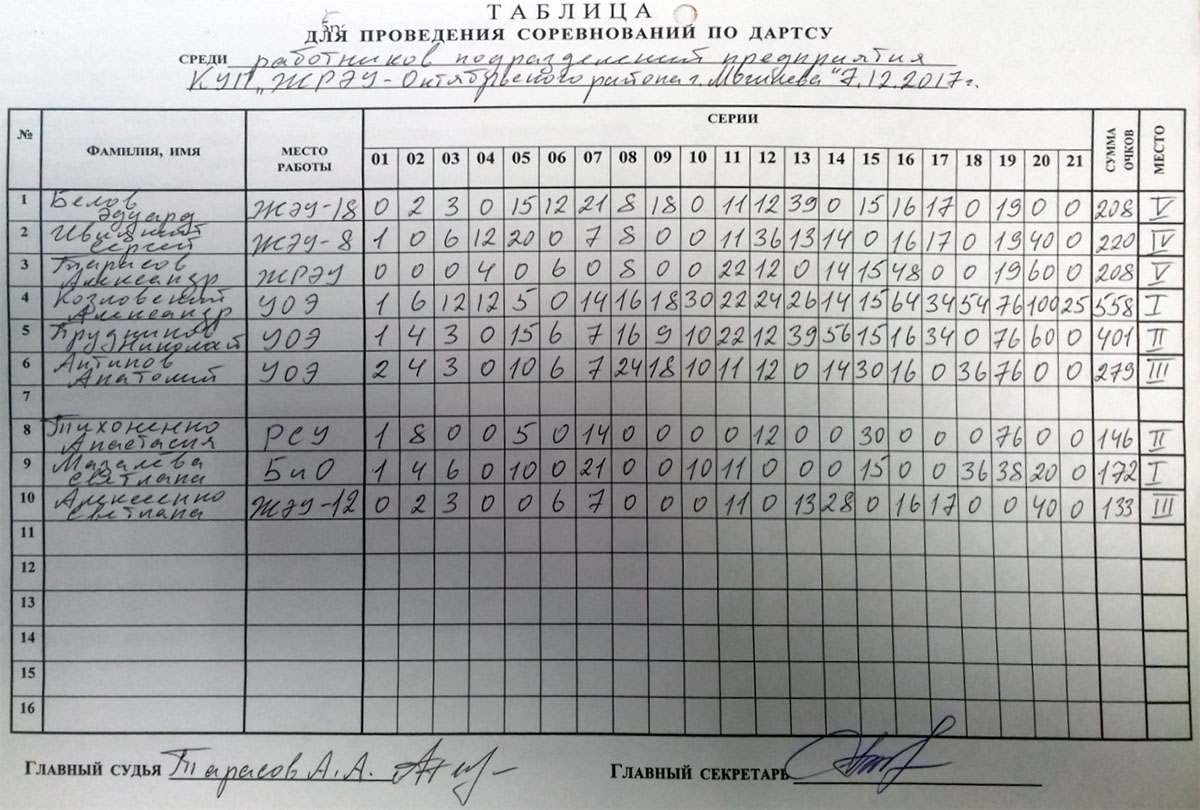 ТАБЛИЦА
ДЛЯ ПРОВЕДЕНИЯ СОРЕВНОВАНИЙ ПО ДАРТСУ
СРЕДИ работников подразделений предприятия
КУП „ЖРЭУ - Октябрьского района г. Могилева" 7.12.2017г.
№ ФАМИЛИЯ, ИМЯ МЕСТО РАБОТЫ СЕРИИ СУММА ОЧКОВ МЕСТО
01 02 03 04 05 06 07 08 09 10 11 12 13 14 15 16 17 18 19 20 21
1 Белов Эдуард ЖЭУ-18 0 2 3 0 15 12 21 8 18 0 11 12 39 0 15 16 17 0 19 0 0 208 V
2 Сергей ЖЭУ-8 1 0 6 12 20 0 7 8 0 0 11 36 13 14 0 16 17 0 19 40 0 220 IV
3 Тарасов Александр ЖРЭУ 0 0 0 4 0 6 0 8 0 0 22 12 0 14 15 48 0 0 19 60 0 208 V
4 Козловский Александр УОЭ 1 6 12 12 5 0 14 16 18 30 22 24 26 14 15 64 34 54 76 100 25 558 I
5 Прудников Николай УОЭ 1 4 3 0 15 6 7 16 9 10 22 12 39 56 15 16 34 0 76 60 0 401 II
6 Антипов Анатолий УОЭ 2 4 3 0 10 6 7 24 18 10 11 12 0 14 30 16 0 36 76 0 0 279 III
7
8 Тихоненко Анастасия РСУ 1 8 0 0 5 0 14 0 0 0 0 12 0 0 30 0 0 0 76 0 0 146 II
9 Светлана БиО 1 4 6 0 10 0 21 0 0 10 11 0 0 0 15 0 0 36 38 20 0 172 I
10 Алексеенко Светлана ЖЭУ-12 0 2 3 0 0 6 7 0 0 0 11 0 13 28 0 16 17 0 0 40 0 133 III
11
12
13
14
15
16
ГЛАВНЫЙ СУДЬЯ Тарасов А.А. ГЛАВНЫЙ СЕКРЕТАРЬ